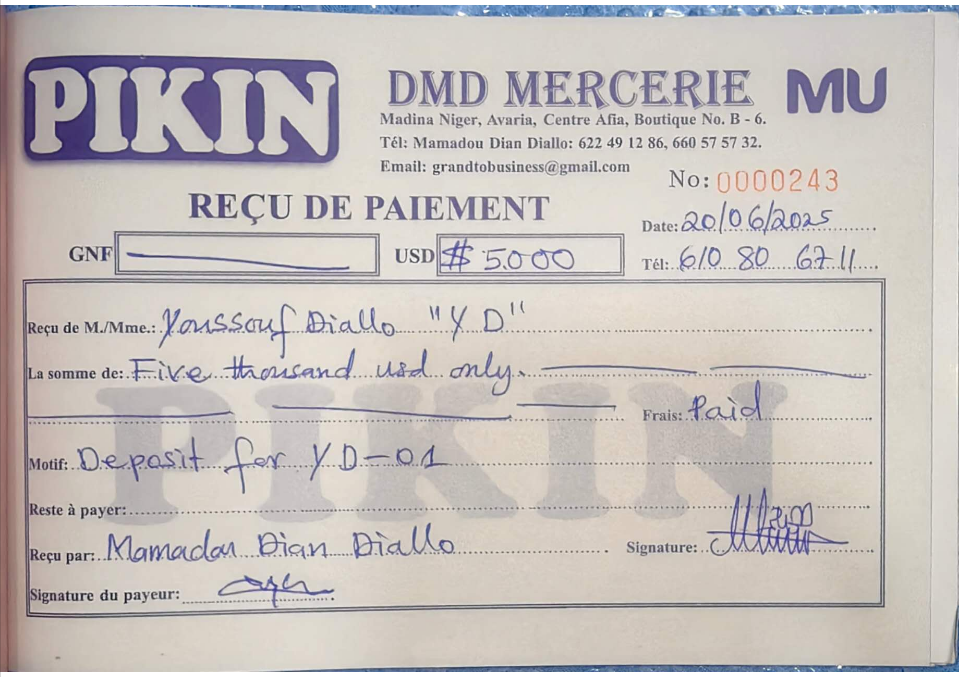 PIKIN
DMD MERCERIE
MU
Madina Niger, Avaria, Centre Afia, Boutique No. B - 6.
Tél: Mamadou Dian Diallo: 622 49 12 86, 660 57 57 32.
Email: grandtobusiness@gmail.com
No: 0000243
REÇU DE PAIEMENT
Date: 20/06/2025
GNF USD $ 5000
Tél: 610 80 67 11
Reçu de M./Mme.: Youssouf Diallo "YD"
La somme de: Five thousand usd only.
Frais: Paid
PIKIN
Motif: Deposit for YD-01
Reste à payer:
Reçu par: Mamadou Dian Diallo
Signature:
Signature du payeur: